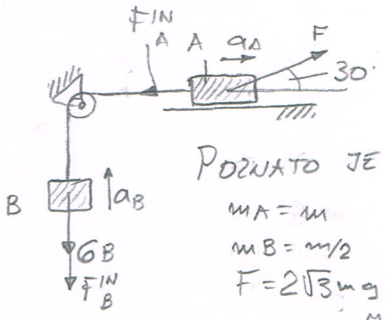 F IN A
A
aA
F
30°
B
aB
GB
F IN B
POZNATO JE
mA = m
mB = m/2
F = 2√3 mg